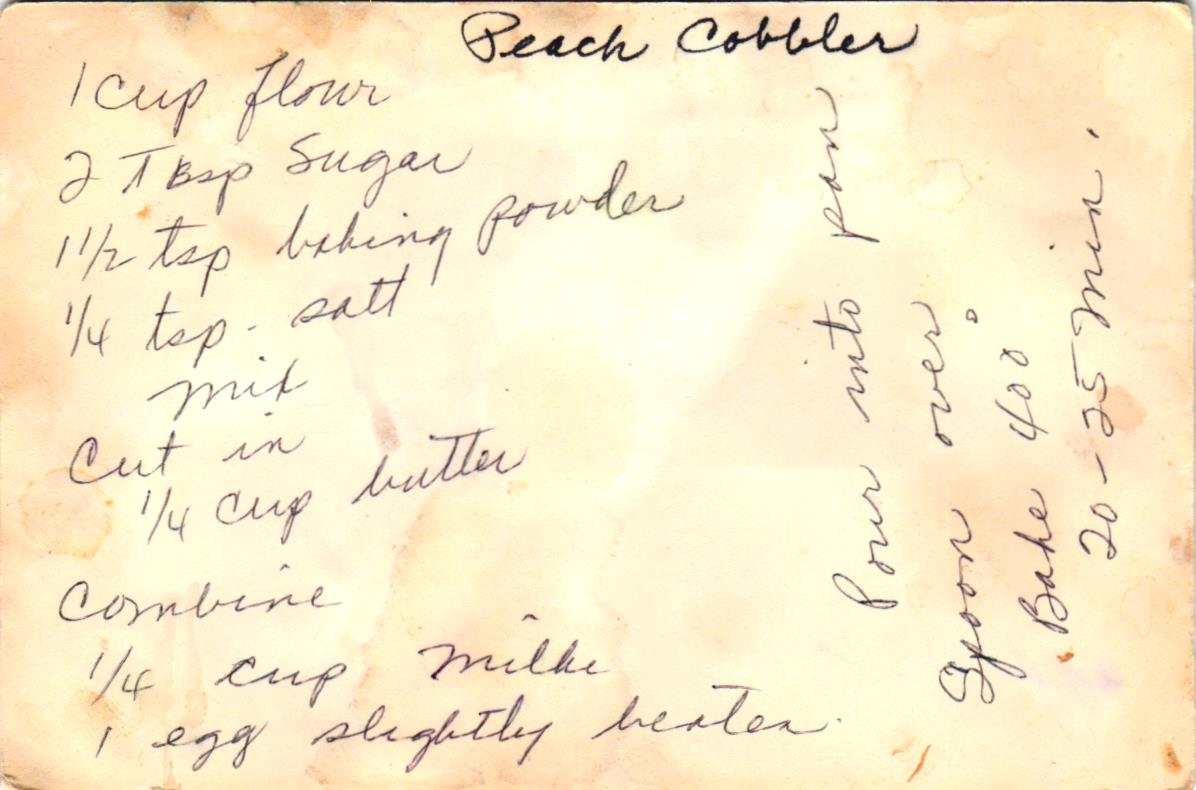 Peach Cobbler
1 cup flour
2 TBsp Sugar
1 1/2 tsp baking powder
1/4 tsp. salt
mix
Cut in
1/4 cup butter
Combine
1/4 cup milk
1 egg slightly beaten.
Pour into pan
Spoon over.
Bake 400°
20-25 Min.